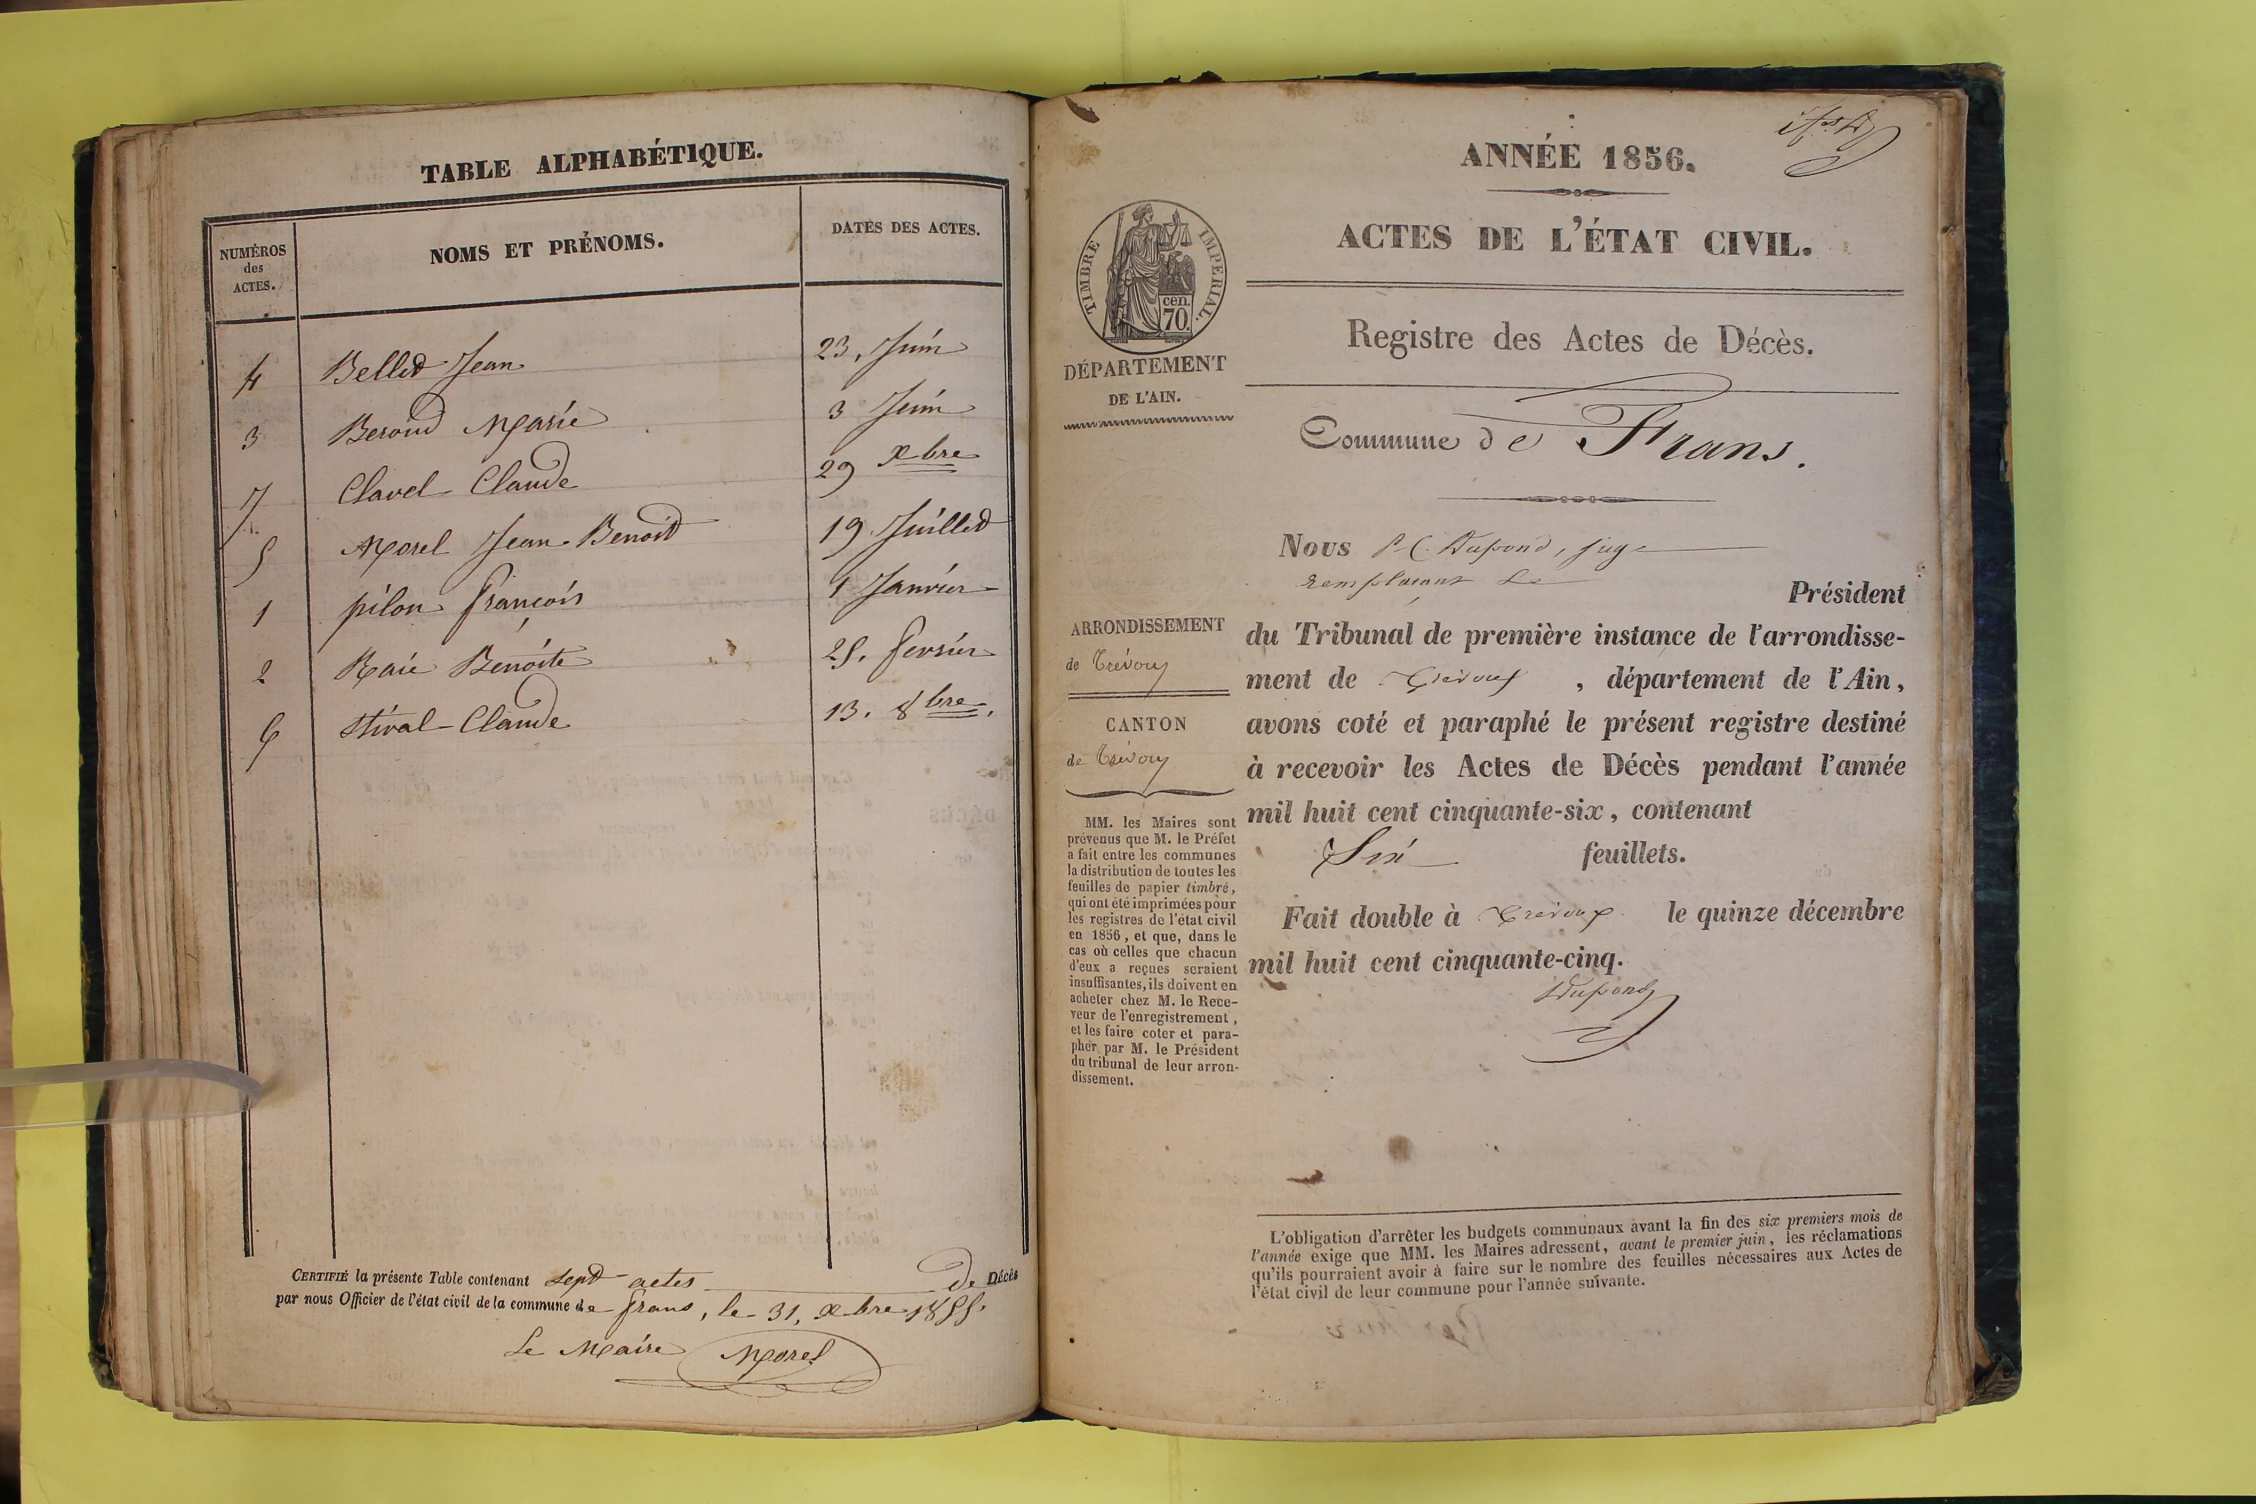 TABLE ALPHABÉTIQUE.
NUMÉROS
des
ACTES.
NOMS ET PRÉNOMS.
DATES DES ACTES.
4 Bellet Jean 23. Juin
3 Beroud Marie 3 Juin
7 Clavel Claude 29 Xbre
5 Morel Jean-Benoit 19 Juillet
1 pilon françois 1 Janvier
2 Raie Benoite 25. fevrier
6 stival Claude 13. 8bre.
CERTIFIÉ la présente Table contenant sept actes de Décès
par nous Officier de l'état civil de la commune de frans, le 31, xbre 1855.
Le Maire Morel
ANNÉE 1856.
ACTES DE L'ÉTAT CIVIL.
Registre des Actes de Décès.
TIMBRE IMPERIAL.
cen.
70.
DÉPARTEMENT
DE L'AIN.
Commune de Frans.
Nous P. C. Dupond, juge
remplaçant le
Président
du Tribunal de première instance de l'arrondisse-
ment de Trévoux, département de l'Ain,
avons coté et paraphé le présent registre destiné
à recevoir les Actes de Décès pendant l'année
mil huit cent cinquante-six, contenant
Six feuillets.
Fait double à Trévoux le quinze décembre
mil huit cent cinquante-cinq.
Dupond
ARRONDISSEMENT
de Trévoux
CANTON
de Trévoux
MM. les Maires sont
prévenus que M. le Préfet
a fait entre les communes
la distribution de toutes les
feuilles de papier timbré,
qui ont été imprimées pour
les registres de l'état civil
en 1856, et que, dans le
cas où celles que chacun
d'eux a reçues seraient
insuffisantes, ils doivent en
acheter chez M. le Rece-
veur de l'enregistrement,
et les faire coter et para-
pher par M. le Président
du tribunal de leur arron-
dissement.
L'obligation d'arrêter les budgets communaux avant la fin des six premiers mois de
l'année exige que MM. les Maires adressent, avant le premier juin, les réclamations
qu'ils pourraient avoir à faire sur le nombre des feuilles nécessaires aux Actes de
l'état civil de leur commune pour l'année suivante.